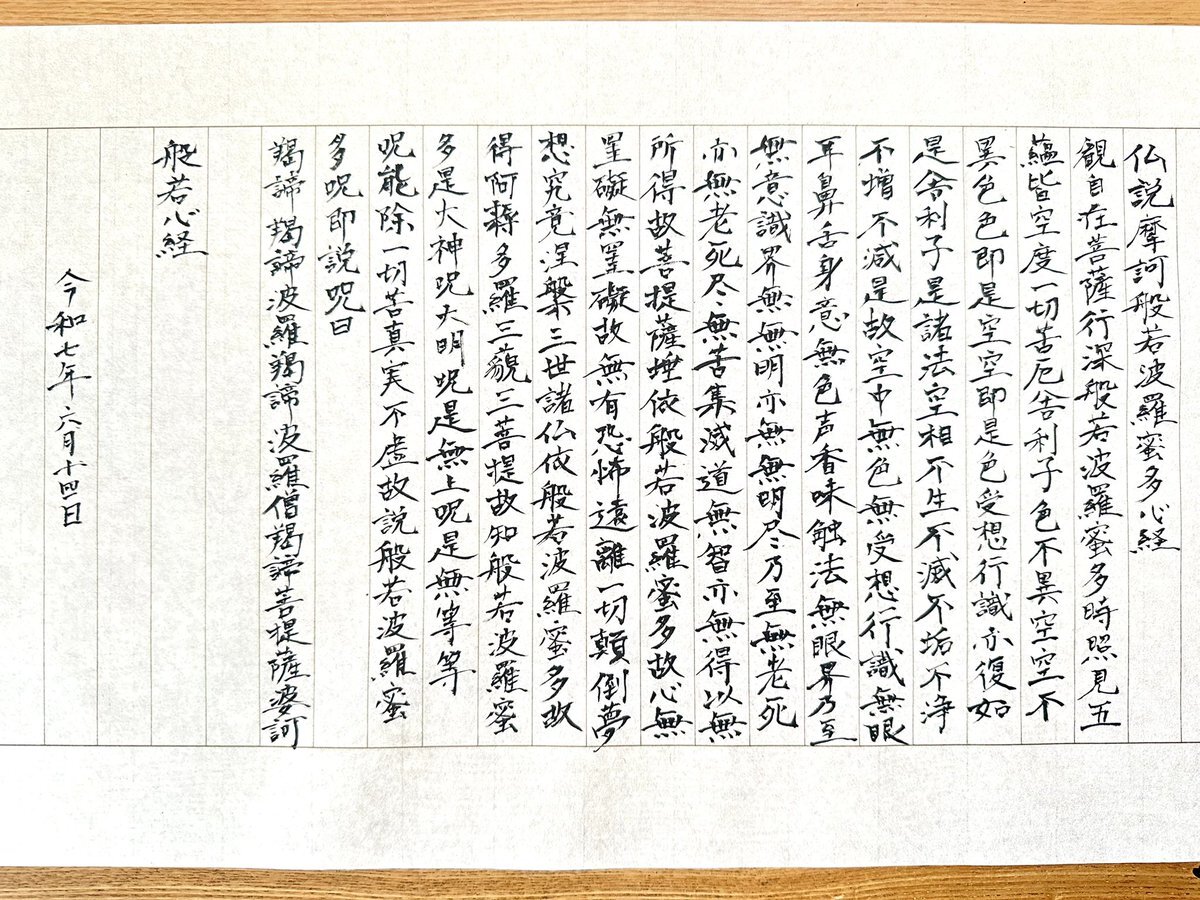 仏説摩訶般若波羅蜜多心経
観自在菩薩行深般若波羅蜜多時照見五
蘊皆空度一切苦厄舎利子色不異空空不
異色色即是空空即是色受想行識亦復如
是舎利子是諸法空相不生不滅不垢不浄
不増不減是故空中無色無受想行識無眼
耳鼻舌身意無色声香味触法無眼界乃至
無意識界無無明亦無無明尽乃至無老死
亦無老死尽無苦集滅道無智亦無得以無
所得故菩提薩埵依般若波羅蜜多故心無
罣礙無罣礙故無有恐怖遠離一切顛倒夢
想究竟涅槃三世諸仏依般若波羅蜜多故
得阿耨多羅三藐三菩提故知般若波羅蜜
多是大神呪大明呪是無上呪是無等等
呪能除一切苦真実不虚故説般若波羅蜜
多呪即説呪曰
羯諦羯諦波羅羯諦波羅僧羯諦菩提薩婆訶
般若心経
令和七年六月十四日